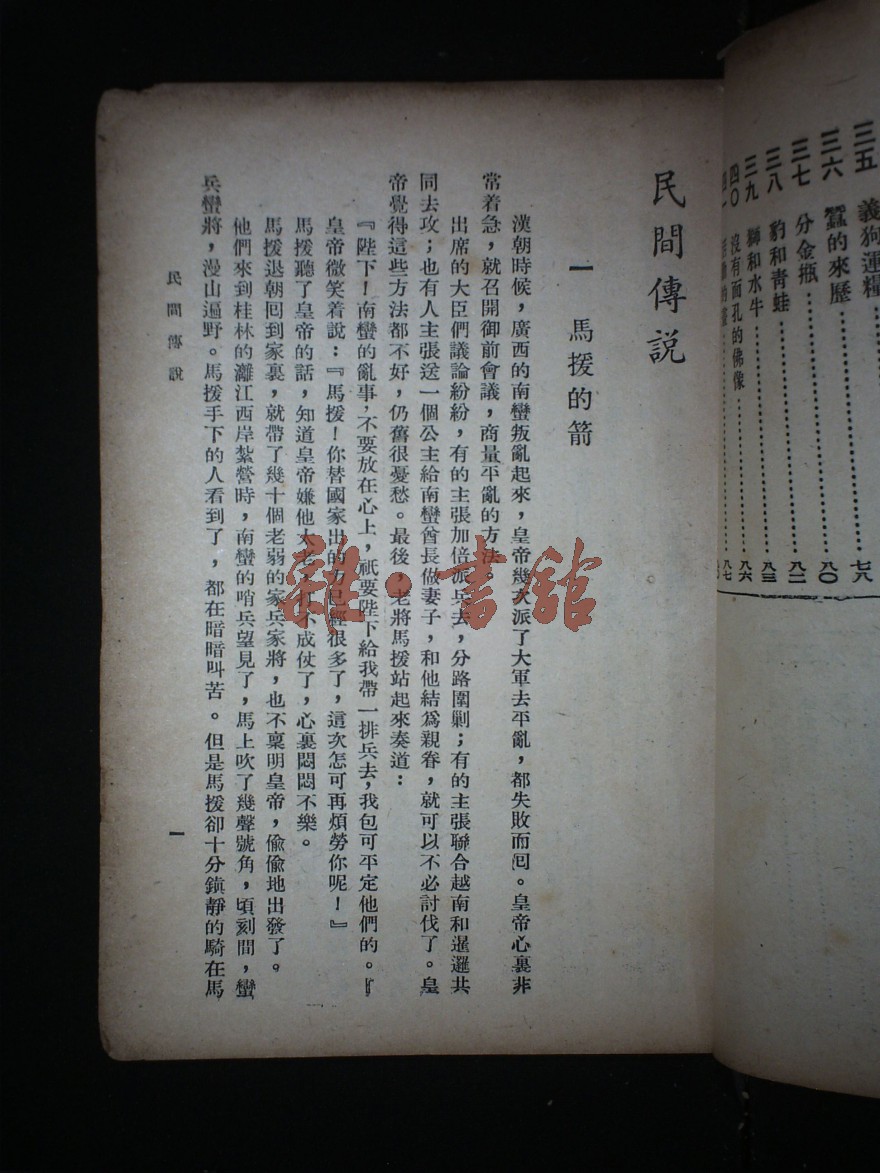 三五 義狗運糧 七八
三六 蠶的來歷 八〇
三七 分金瓶 八二
三八 豹和青蛙 八三
三九 獅和水牛 八六
四〇 沒有面孔的佛像 八七
民間傳說
一 馬援的箭
漢朝時候，廣西的南蠻叛亂起來，皇帝幾次派了大軍去平亂，都失敗而回。皇帝心裏非
常着急，就召開御前會議，商量平亂的方法。
出席的大臣們議論紛紛，有的主張加倍派兵去，分路圍剿；有的主張聯合越南和暹邏共
同去攻；也有人主張送一個公主給南蠻酋長做妻子，和他結爲親眷，就可以不必討伐了。皇
帝覺得這些方法都不好，仍舊很憂愁。最後，老將馬援站起來奏道：
『陛下！南蠻的亂事，不要放在心上，祇要陛下給我帶一排兵去，我包可平定他們的。』
皇帝微笑着說：『馬援！你替國家出的力已經很多了，這次怎可再煩勞你呢！』
馬援聽了皇帝的話，知道皇帝嫌他太老，打不成仗了，心裏悶悶不樂。
馬援退朝回到家裏，就帶了幾十個老弱的家兵家將，也不稟明皇帝，偷偷地出發了。
他們來到桂林的灕江西岸紮營時，南蠻的哨兵望見了，馬上吹了幾聲號角，頃刻間，蠻
兵蠻將，漫山遍野。馬援手下的人看到了，都在暗暗叫苦。但是馬援卻十分鎮靜的騎在馬
民間傳說
一
雜·書館